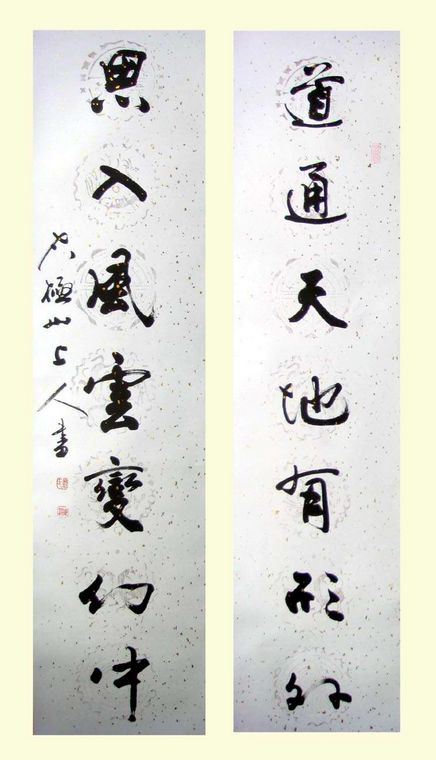 道通天地有形外
思入風雲變幻中
極山上人書